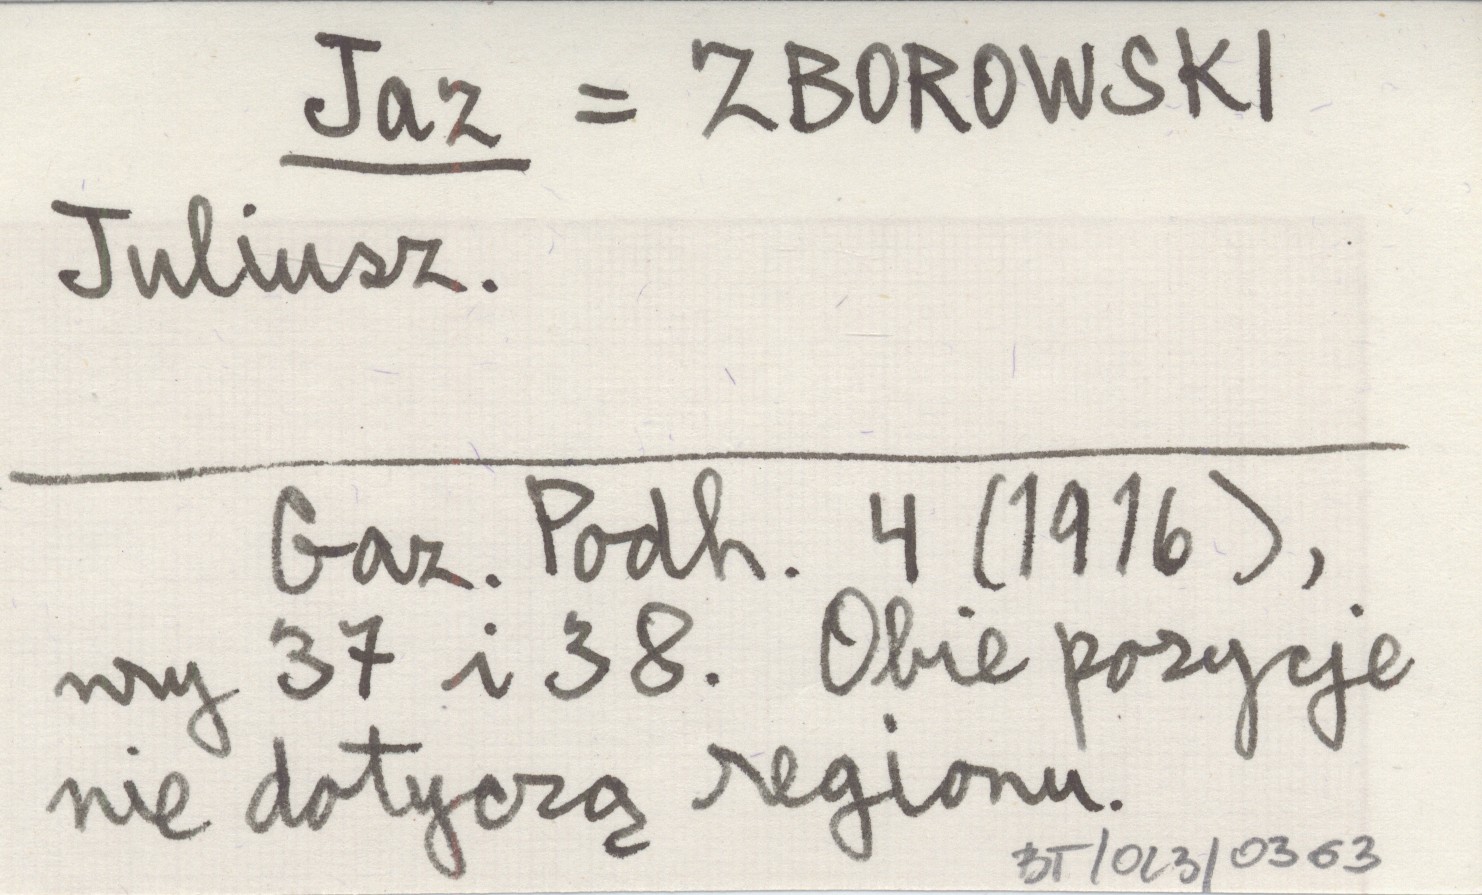 Jaz = ZBOROWSKI
Juliusz.
Gaz. Podh. 4 (1916),
nry 37 i 38. Obie pozycje
nie dotyczą regionu.
BT/023/0363